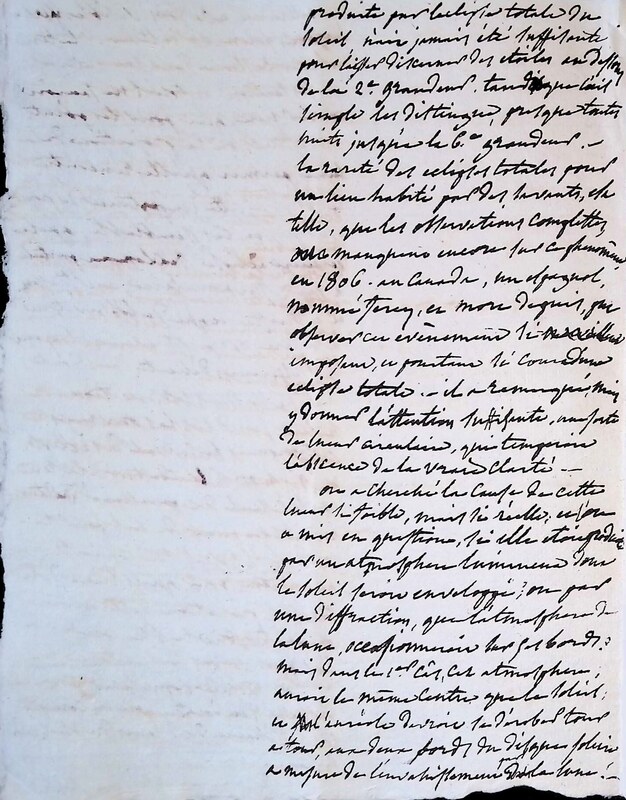 produite par l'eclipse totale du
soleil n'ait jamais été suffisante
pour laisser discerner des étoiles au dessous
de la 2.e grandeur. tandis que l'oeil
simple les distingue, presque toutes
nuits jusqu'à la 6.e grandeur. —
la rareté des eclipses totales pour
un lieu habité par des savants, est
telle, que les observations complettes
manquent encore sur ce phenomène
en 1806. au Canada, un espagnol,
nommé ferer, et mort depuis, put
observer cet evènement si
imposant, et pourtant si court d'une
eclipse totale. — il a remarqué, mais
y donner l'attention suffisante, une sorte
de lueur circulaire, qui temperait
l'absence de la vraie clarté —
on a cherché la cause de cette
lueur si foible, mais si réelle. et l'on
a mis en question, si elle etoit produite
par un atmosphere lumineux dont
le soleil seroit enveloppé? ou par
une diffraction, que l'atmosphere de
la lune, occasionneroit sur ses bords?
mais dans le 1.er cas, cet atmosphere,
auroit le même centre que le soleil;
et l'auréole devroit se dérober tour
a tour aux deux bords du disque solaire
a mesure de l'envahissement par la lune. —